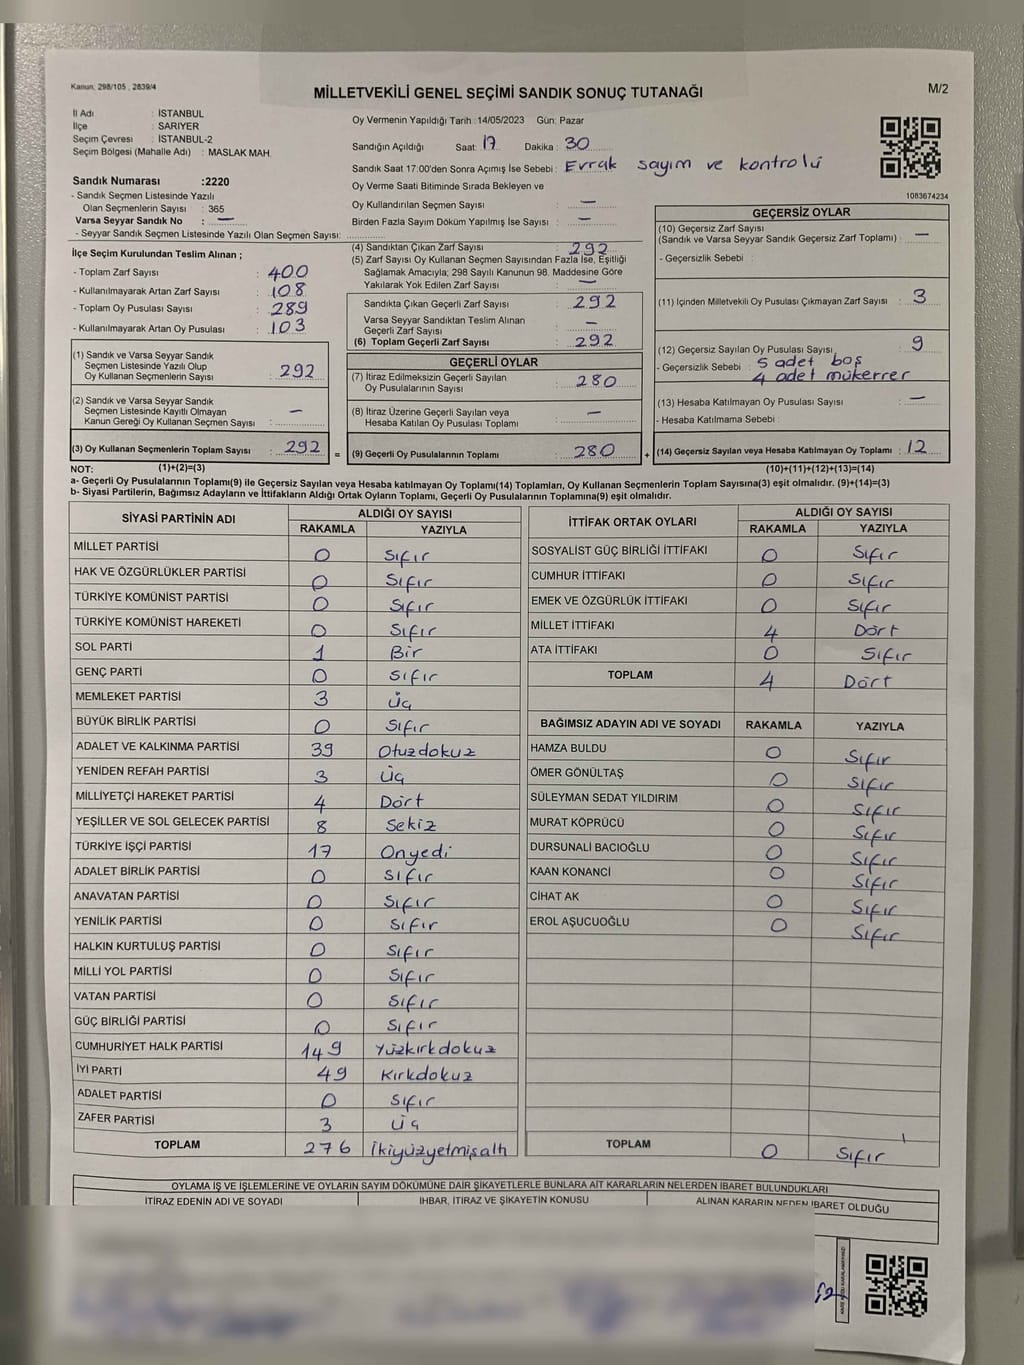 Kanun: 298/105 , 2839/4
MİLLETVEKİLİ GENEL SEÇİMİ SANDIK SONUÇ TUTANAĞI
M/2
İl Adı : İSTANBUL
İlçe : SARIYER
Seçim Çevresi : İSTANBUL-2
Seçim Bölgesi (Mahalle Adı) : MASLAK MAH.
Sandık Numarası :2220
- Sandık Seçmen Listesinde Yazılı
Olan Seçmenlerin Sayısı : 365
Varsa Seyyar Sandık No : —
- Seyyar Sandık Seçmen Listesinde Yazılı Olan Seçmen Sayısı:
Oy Vermenin Yapıldığı Tarih :14/05/2023 Gün: Pazar
Sandığın Açıldığı Saat: 17 Dakika : 30
Sandık Saat 17:00'den Sonra Açımış İse Sebebi : Evrak sayım ve kontrolü
Oy Verme Saati Bitiminde Sırada Bekleyen ve
Oy Kullandırılan Seçmen Sayısı : —
Birden Fazla Sayım Döküm Yapılmış İse Sayısı : —
1083674234
İlçe Seçim Kurulundan Teslim Alınan ;
- Toplam Zarf Sayısı : 400
- Kullanılmayarak Artan Zarf Sayısı : 108
- Toplam Oy Pusulası Sayısı : 289
- Kullanılmayarak Artan Oy Pusulası : 103
(1) Sandık ve Varsa Seyyar Sandık
Seçmen Listesinde Yazılı Olup
Oy Kullanan Seçmenlerin Sayısı : 292
(2) Sandık ve Varsa Seyyar Sandık
Seçmen Listesinde Kayıtlı Olmayan
Kanun Gereği Oy Kullanan Seçmen Sayısı : —
(3) Oy Kullanan Seçmenlerin Toplam Sayısı : 292 =
(4) Sandıktan Çıkan Zarf Sayısı : 292
(5) Zarf Sayısı Oy Kullanan Seçmen Sayısından Fazla İse, Eşitliği
Sağlamak Amacıyla; 298 Sayılı Kanunun 98. Maddesine Göre
Yakılarak Yok Edilen Zarf Sayısı : —
Sandıkta Çıkan Geçerli Zarf Sayısı : 292
Varsa Seyyar Sandıktan Teslim Alınan
Geçerli Zarf Sayısı : —
(6) Toplam Geçerli Zarf Sayısı : 292
GEÇERLİ OYLAR
(7) İtiraz Edilmeksizin Geçerli Sayılan
Oy Pusulalarının Sayısı : 280
(8) İtiraz Üzerine Geçerli Sayılan veya
Hesaba Katılan Oy Pusulası Toplamı : —
(9) Geçerli Oy Pusulalarının Toplamı : 280 +
GEÇERSİZ OYLAR
(10) Geçersiz Zarf Sayısı
(Sandık ve Varsa Seyyar Sandık Geçersiz Zarf Toplamı) : —
- Geçersizlik Sebebi :
(11) İçinden Milletvekili Oy Pusulası Çıkmayan Zarf Sayısı : 3
(12) Geçersiz Sayılan Oy Pusulası Sayısı : 9
- Geçersizlik Sebebi : 5 adet boş
4 adet mükerrer
(13) Hesaba Katılmayan Oy Pusulası Sayısı : —
- Hesaba Katılmama Sebebi :
(14) Geçersiz Sayılan veya Hesaba Katılmayan Oy Toplamı : 12
NOT: (1)+(2)=(3) (10)+(11)+(12)+(13)=(14)
a- Geçerli Oy Pusulalarının Toplamı(9) ile Geçersiz Sayılan veya Hesaba katılmayan Oy Toplamı(14) Toplamları, Oy Kullanan Seçmenlerin Toplam Sayısına(3) eşit olmalıdır. (9)+(14)=(3)
b- Siyasi Partilerin, Bağımsız Adayların ve İttifakların Aldığı Ortak Oyların Toplamı, Geçerli Oy Pusulalarının Toplamına(9) eşit olmalıdır.
SİYASİ PARTİNİN ADI ALDIĞI OY SAYISI
RAKAMLA YAZIYLA
MİLLET PARTİSİ 0 Sıfır
HAK VE ÖZGÜRLÜKLER PARTİSİ 0 Sıfır
TÜRKİYE KOMÜNİST PARTİSİ 0 Sıfır
TÜRKİYE KOMÜNİST HAREKETİ 0 Sıfır
SOL PARTİ 1 Bir
GENÇ PARTİ 0 Sıfır
MEMLEKET PARTİSİ 3 Üç
BÜYÜK BİRLİK PARTİSİ 0 Sıfır
ADALET VE KALKINMA PARTİSİ 39 Otuzdokuz
YENİDEN REFAH PARTİSİ 3 Üç
MİLLİYETÇİ HAREKET PARTİSİ 4 Dört
YEŞİLLER VE SOL GELECEK PARTİSİ 8 Sekiz
TÜRKİYE İŞÇİ PARTİSİ 17 Onyedi
ADALET BİRLİK PARTİSİ 0 Sıfır
ANAVATAN PARTİSİ 0 Sıfır
YENİLİK PARTİSİ 0 Sıfır
HALKIN KURTULUŞ PARTİSİ 0 Sıfır
MİLLİ YOL PARTİSİ 0 Sıfır
VATAN PARTİSİ 0 Sıfır
GÜÇ BİRLİĞİ PARTİSİ 0 Sıfır
CUMHURİYET HALK PARTİSİ 149 Yüzkırkdokuz
İYİ PARTİ 49 Kırkdokuz
ADALET PARTİSİ 0 Sıfır
ZAFER PARTİSİ 3 Üç
TOPLAM 276 İkiyüzyetmişaltı
İTTİFAK ORTAK OYLARI ALDIĞI OY SAYISI
RAKAMLA YAZIYLA
SOSYALİST GÜÇ BİRLİĞİ İTTİFAKI 0 Sıfır
CUMHUR İTTİFAKI 0 Sıfır
EMEK VE ÖZGÜRLÜK İTTİFAKI 0 Sıfır
MİLLET İTTİFAKI 4 Dört
ATA İTTİFAKI 0 Sıfır
TOPLAM 4 Dört
BAĞIMSIZ ADAYIN ADI VE SOYADI RAKAMLA YAZIYLA
HAMZA BULDU 0 Sıfır
ÖMER GÖNÜLTAŞ 0 Sıfır
SÜLEYMAN SEDAT YILDIRIM 0 Sıfır
MURAT KÖPRÜCÜ 0 Sıfır
DURSUNALİ BACIOĞLU 0 Sıfır
KAAN KONANCİ 0 Sıfır
CİHAT AK 0 Sıfır
EROL AŞUCUOĞLU 0 Sıfır
TOPLAM 0 Sıfır
OYLAMA İŞ VE İŞLEMLERİNE VE OYLARIN SAYIM DÖKÜMÜNE DAİR ŞİKAYETLERLE BUNLARA AİT KARARLARIN NELERDEN İBARET BULUNDUKLARI
İTİRAZ EDENİN ADI VE SOYADI İHBAR, İTİRAZ VE ŞİKAYETİN KONUSU ALINAN KARARIN NEDEN İBARET OLDUĞU